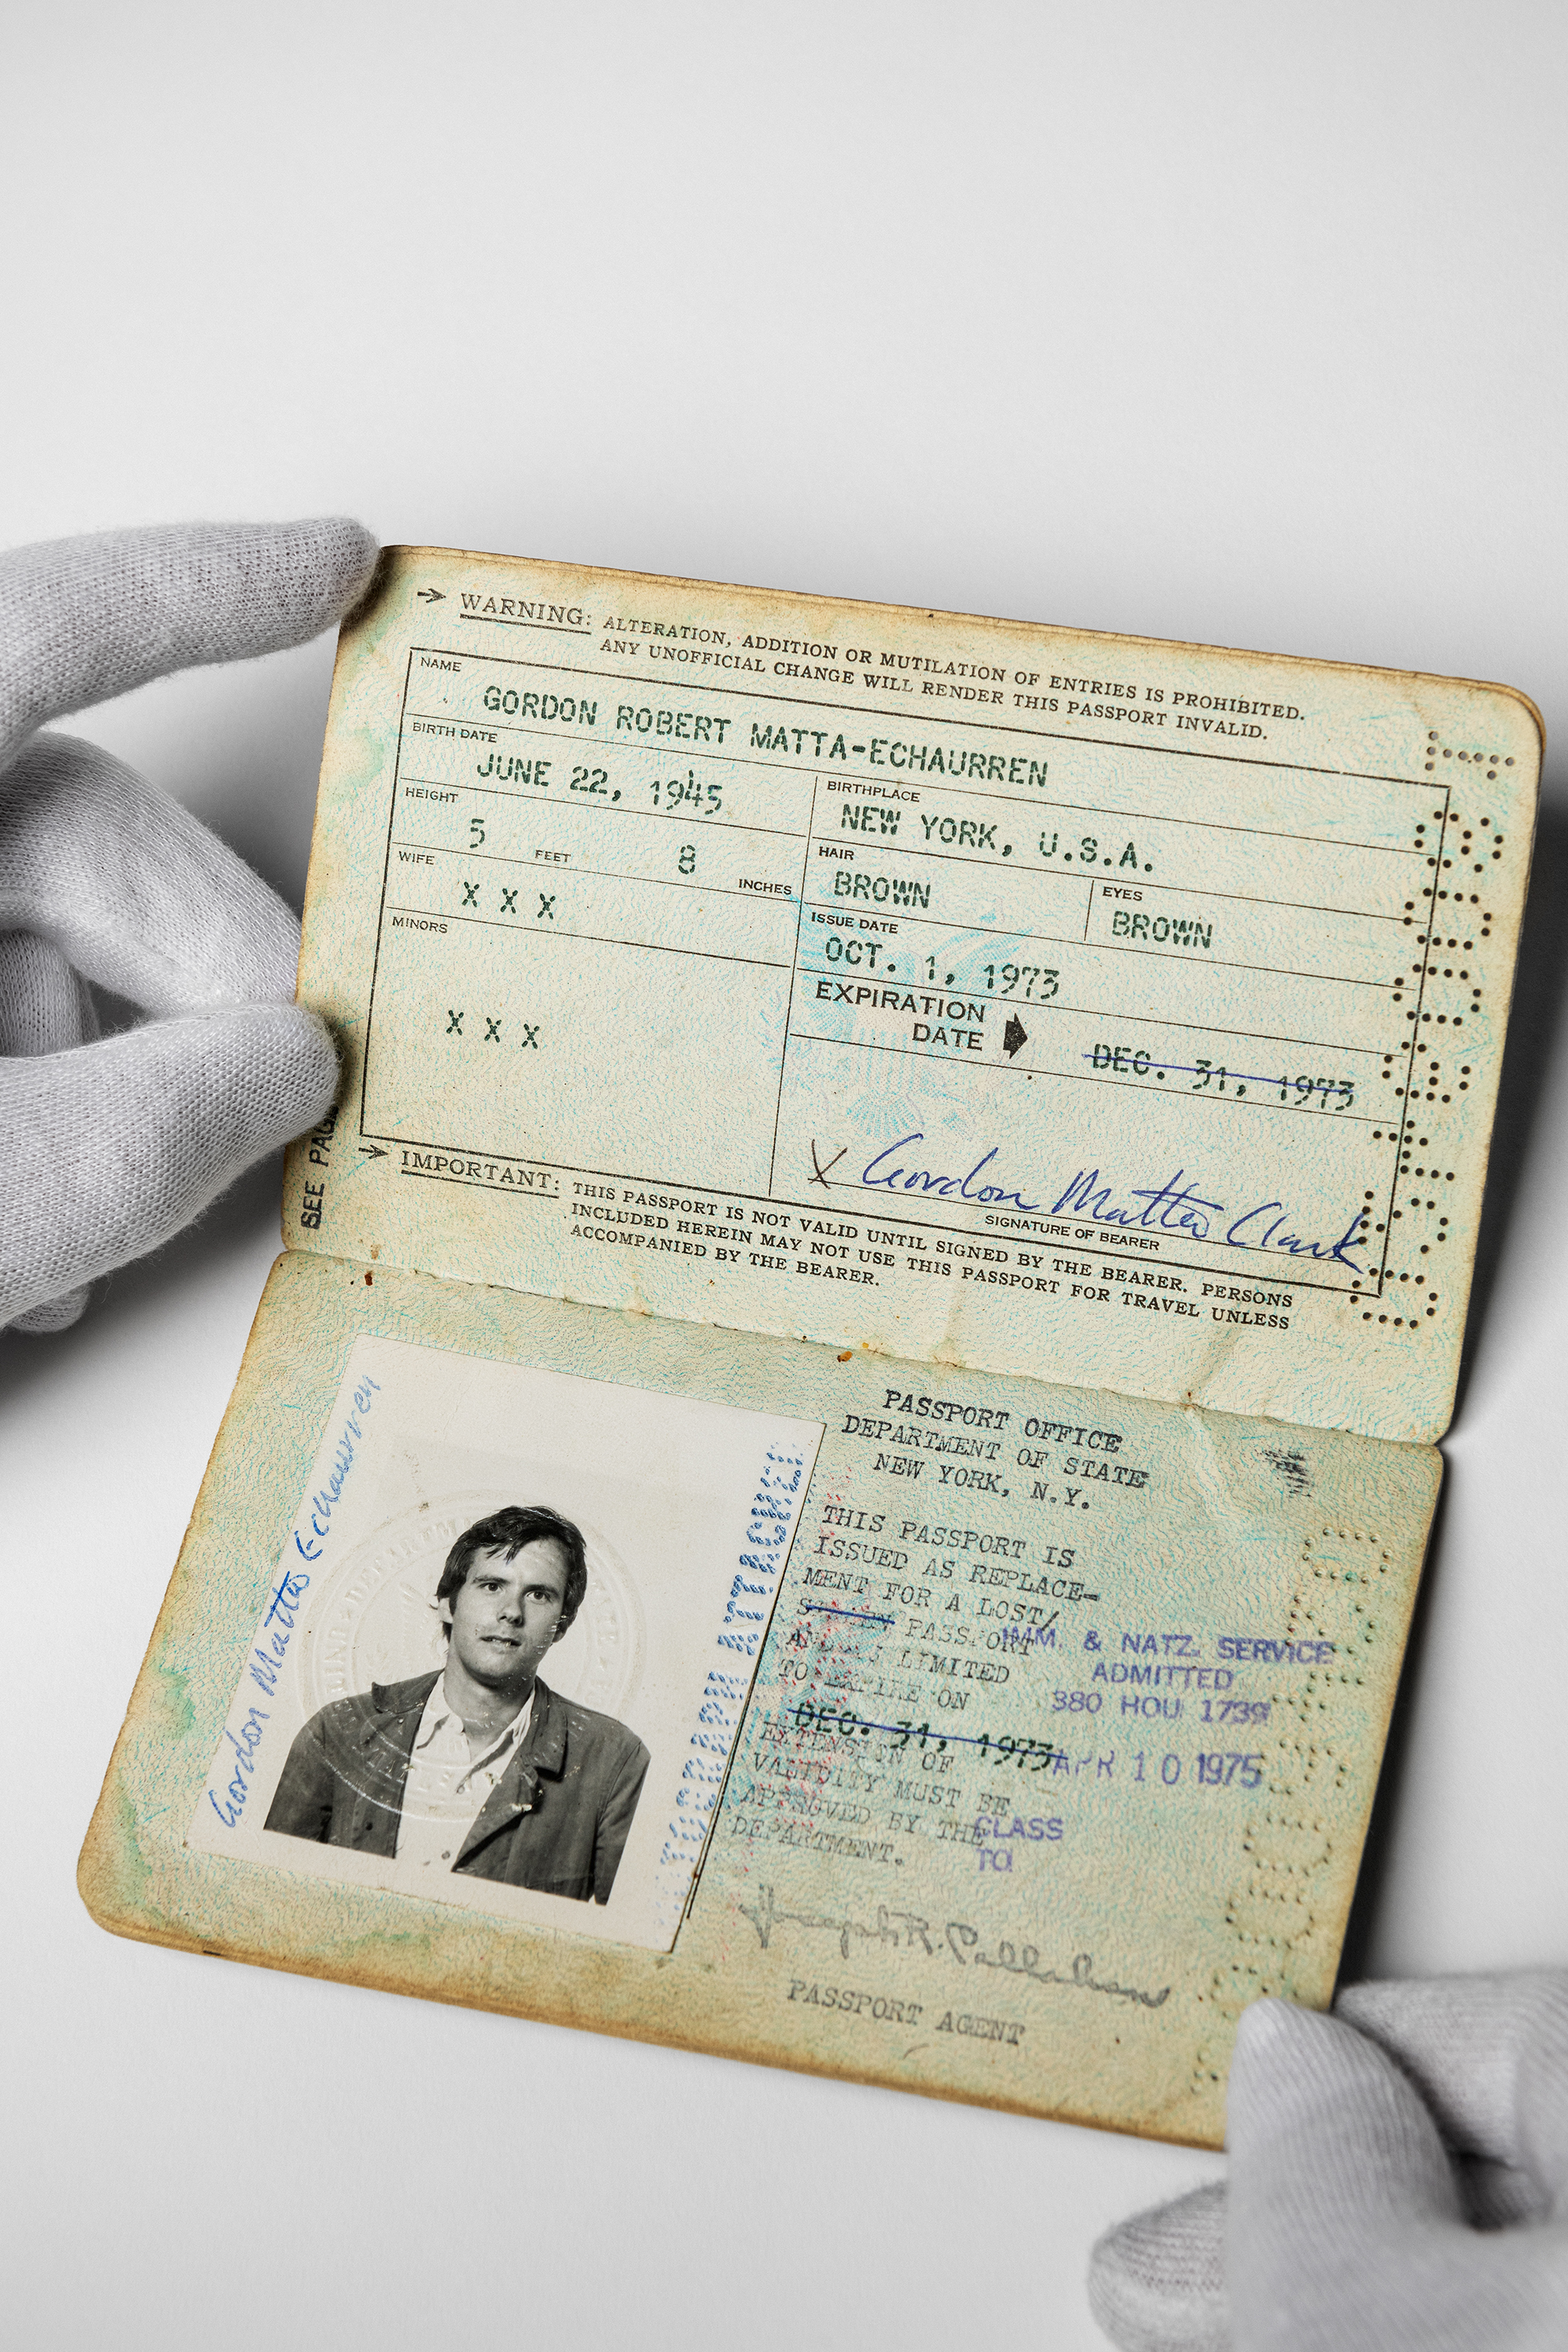 WARNING: ALTERATION, ADDITION OR MUTILATION OF ENTRIES IS PROHIBITED.
ANY UNOFFICIAL CHANGE WILL RENDER THIS PASSPORT INVALID.
NAME
GORDON ROBERT MATTA-ECHAURREN
BIRTH DATE
JUNE 22, 1945
BIRTHPLACE
NEW YORK, U.S.A.
HEIGHT
5 FEET 8 INCHES
HAIR
BROWN
EYES
BROWN
WIFE
X X X
ISSUE DATE
OCT. 1, 1973
MINORS
X X X
EXPIRATION
DATE
DEC. 31, 1973
X Gordon Matta Clark
SIGNATURE OF BEARER
SEE PAG
IMPORTANT: THIS PASSPORT IS NOT VALID UNTIL SIGNED BY THE BEARER. PERSONS
INCLUDED HEREIN MAY NOT USE THIS PASSPORT FOR TRAVEL UNLESS
ACCOMPANIED BY THE BEARER.
Gordon Matta Echaurren
PASSPORT OFFICE
DEPARTMENT OF STATE
NEW YORK, N.Y.
THIS PASSPORT IS
ISSUED AS REPLACE-
MENT FOR A LOST/
PASSPORT
LIMITED
TO EXPIRE ON
DEC. 31, 1973
EXTENSION OF
VALIDITY MUST BE
APPROVED BY THE
DEPARTMENT.
IMM. & NATZ. SERVICE
ADMITTED
380 HOU 1739
APR 10 1975
CLASS
TO
PASSPORT AGENT